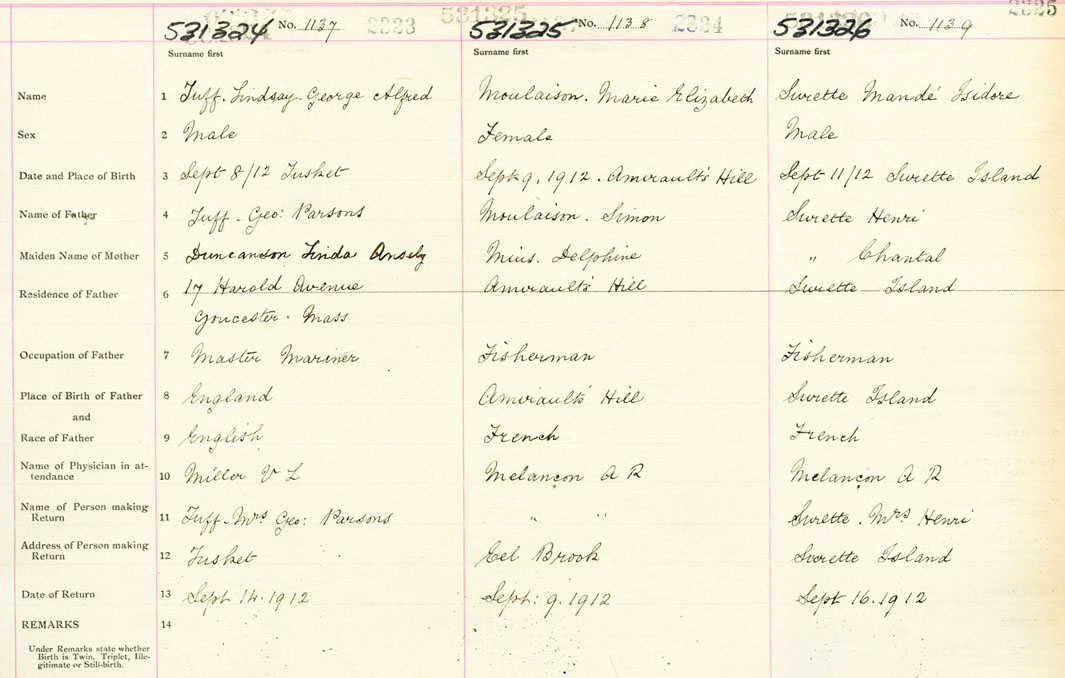 531324 No. 1137 2323 531325 No. 1138 2324 531326 No. 1139 2325
Surname first Surname first Surname first
Name 1 Tuff. Lindsay. George Alfred Moulaison. Marie Elizabeth Surette Mandé Isidore
Sex 2 Male Female Male
Date and Place of Birth 3 Sept 8/12 Tusket Sept 9, 1912. Amirault's Hill Sept 11/12 Surette Island
Name of Father 4 Tuff. Geo: Parsons Moulaison. Simon Surette Henri
Maiden Name of Mother 5 Duncanson Linda Mius. Delphine " Chantal
Residence of Father 6 17 Harold Avenue Amirault's Hill Surette Island
Goucester. Mass
Occupation of Father 7 Master Mariner Fisherman Fisherman
Place of Birth of Father 8 England Amirault's Hill Surette Island
and
Race of Father 9 English French French
Name of Physician in at-
tendance 10 Miller V L Melançon A R Melançon A R
Name of Person making
Return 11 Tuff. Mrs Geo: Parsons " " Surette. Mrs Henri
Address of Person making
Return 12 Tusket Eel Brook Surette Island
Date of Return 13 Sept 14. 1912 Sept: 9. 1912 Sept 16. 1912
REMARKS 14
Under Remarks state whether
Birth is Twin, Triplet, Ille-
gitimate or Still-birth.